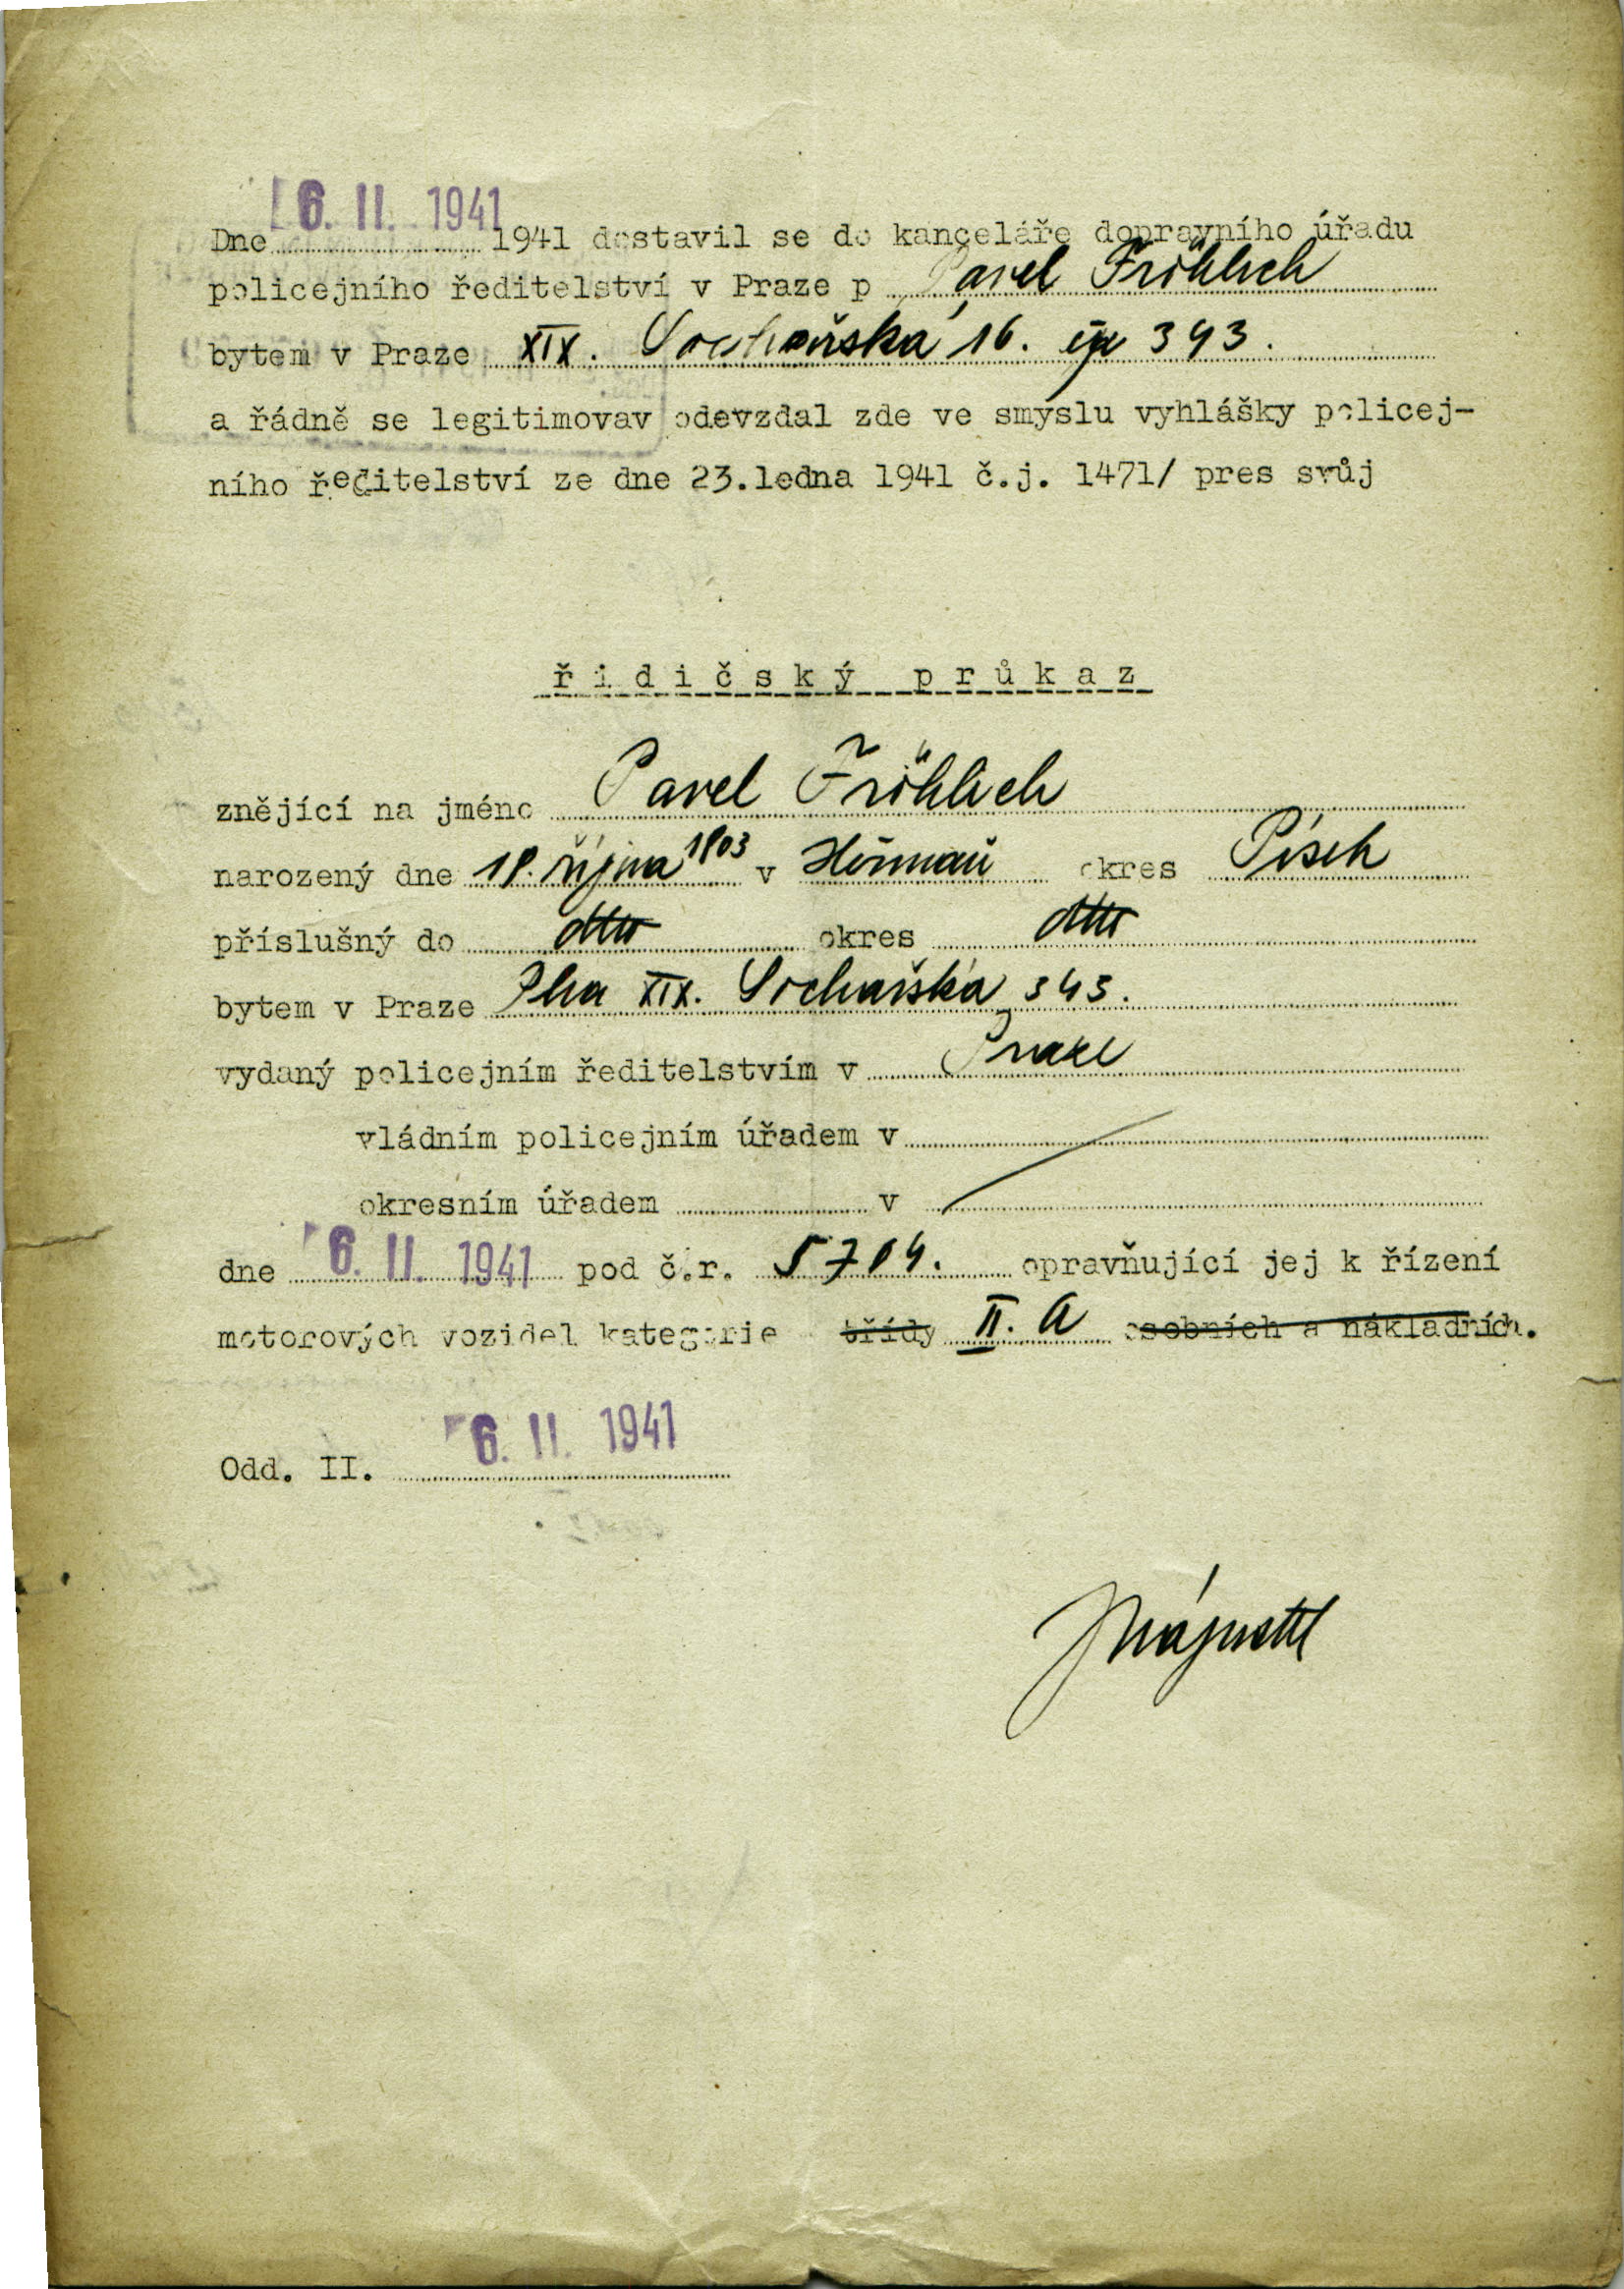 6. II. 1941
Dne 1941 dostavil se do kanceláře dopravního úřadu
policejního ředitelství v Praze p Pavel Fröhlich
bytem v Praze XIX. Sochařská 16. čp 343.
a řádně se legitimovav odevzdal zde ve smyslu vyhlášky policej-
ního ředitelství ze dne 23.ledna 1941 č.j. 1471/ pres svůj
řidičský průkaz
znějící na jméno Pavel Fröhlich
narozený dne 18. října 1903 v okres Písek
příslušný do dtto okres dtto
bytem v Praze Pha XIX. Sochařská 343.
vydaný policejním ředitelstvím v Praze
vládním policejním úřadem v
okresním úřadem v
dne 6. II. 1941 pod č.r. 5704. opravňující jej k řízení
motorových vozidel kategorie třídy II. A osobních a nákladních.
Odd. II. 6. II. 1941